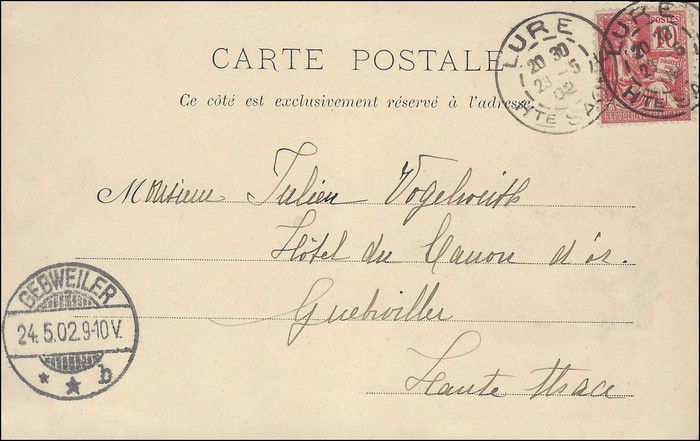 CARTE POSTALE
Ce côté est exclusivement réservé à l'adresse
LURE
20 30
23 -5
02
HTE SAÔ
POSTE
10
LURE
20
HTE SA
RÉPUBLIQUE
Monsieur Julien Vogelweith
Hôtel du Canon d'or.
Guebwiller
Haute Alsace
GEBWEILER
24.5.02.9-10V.
b